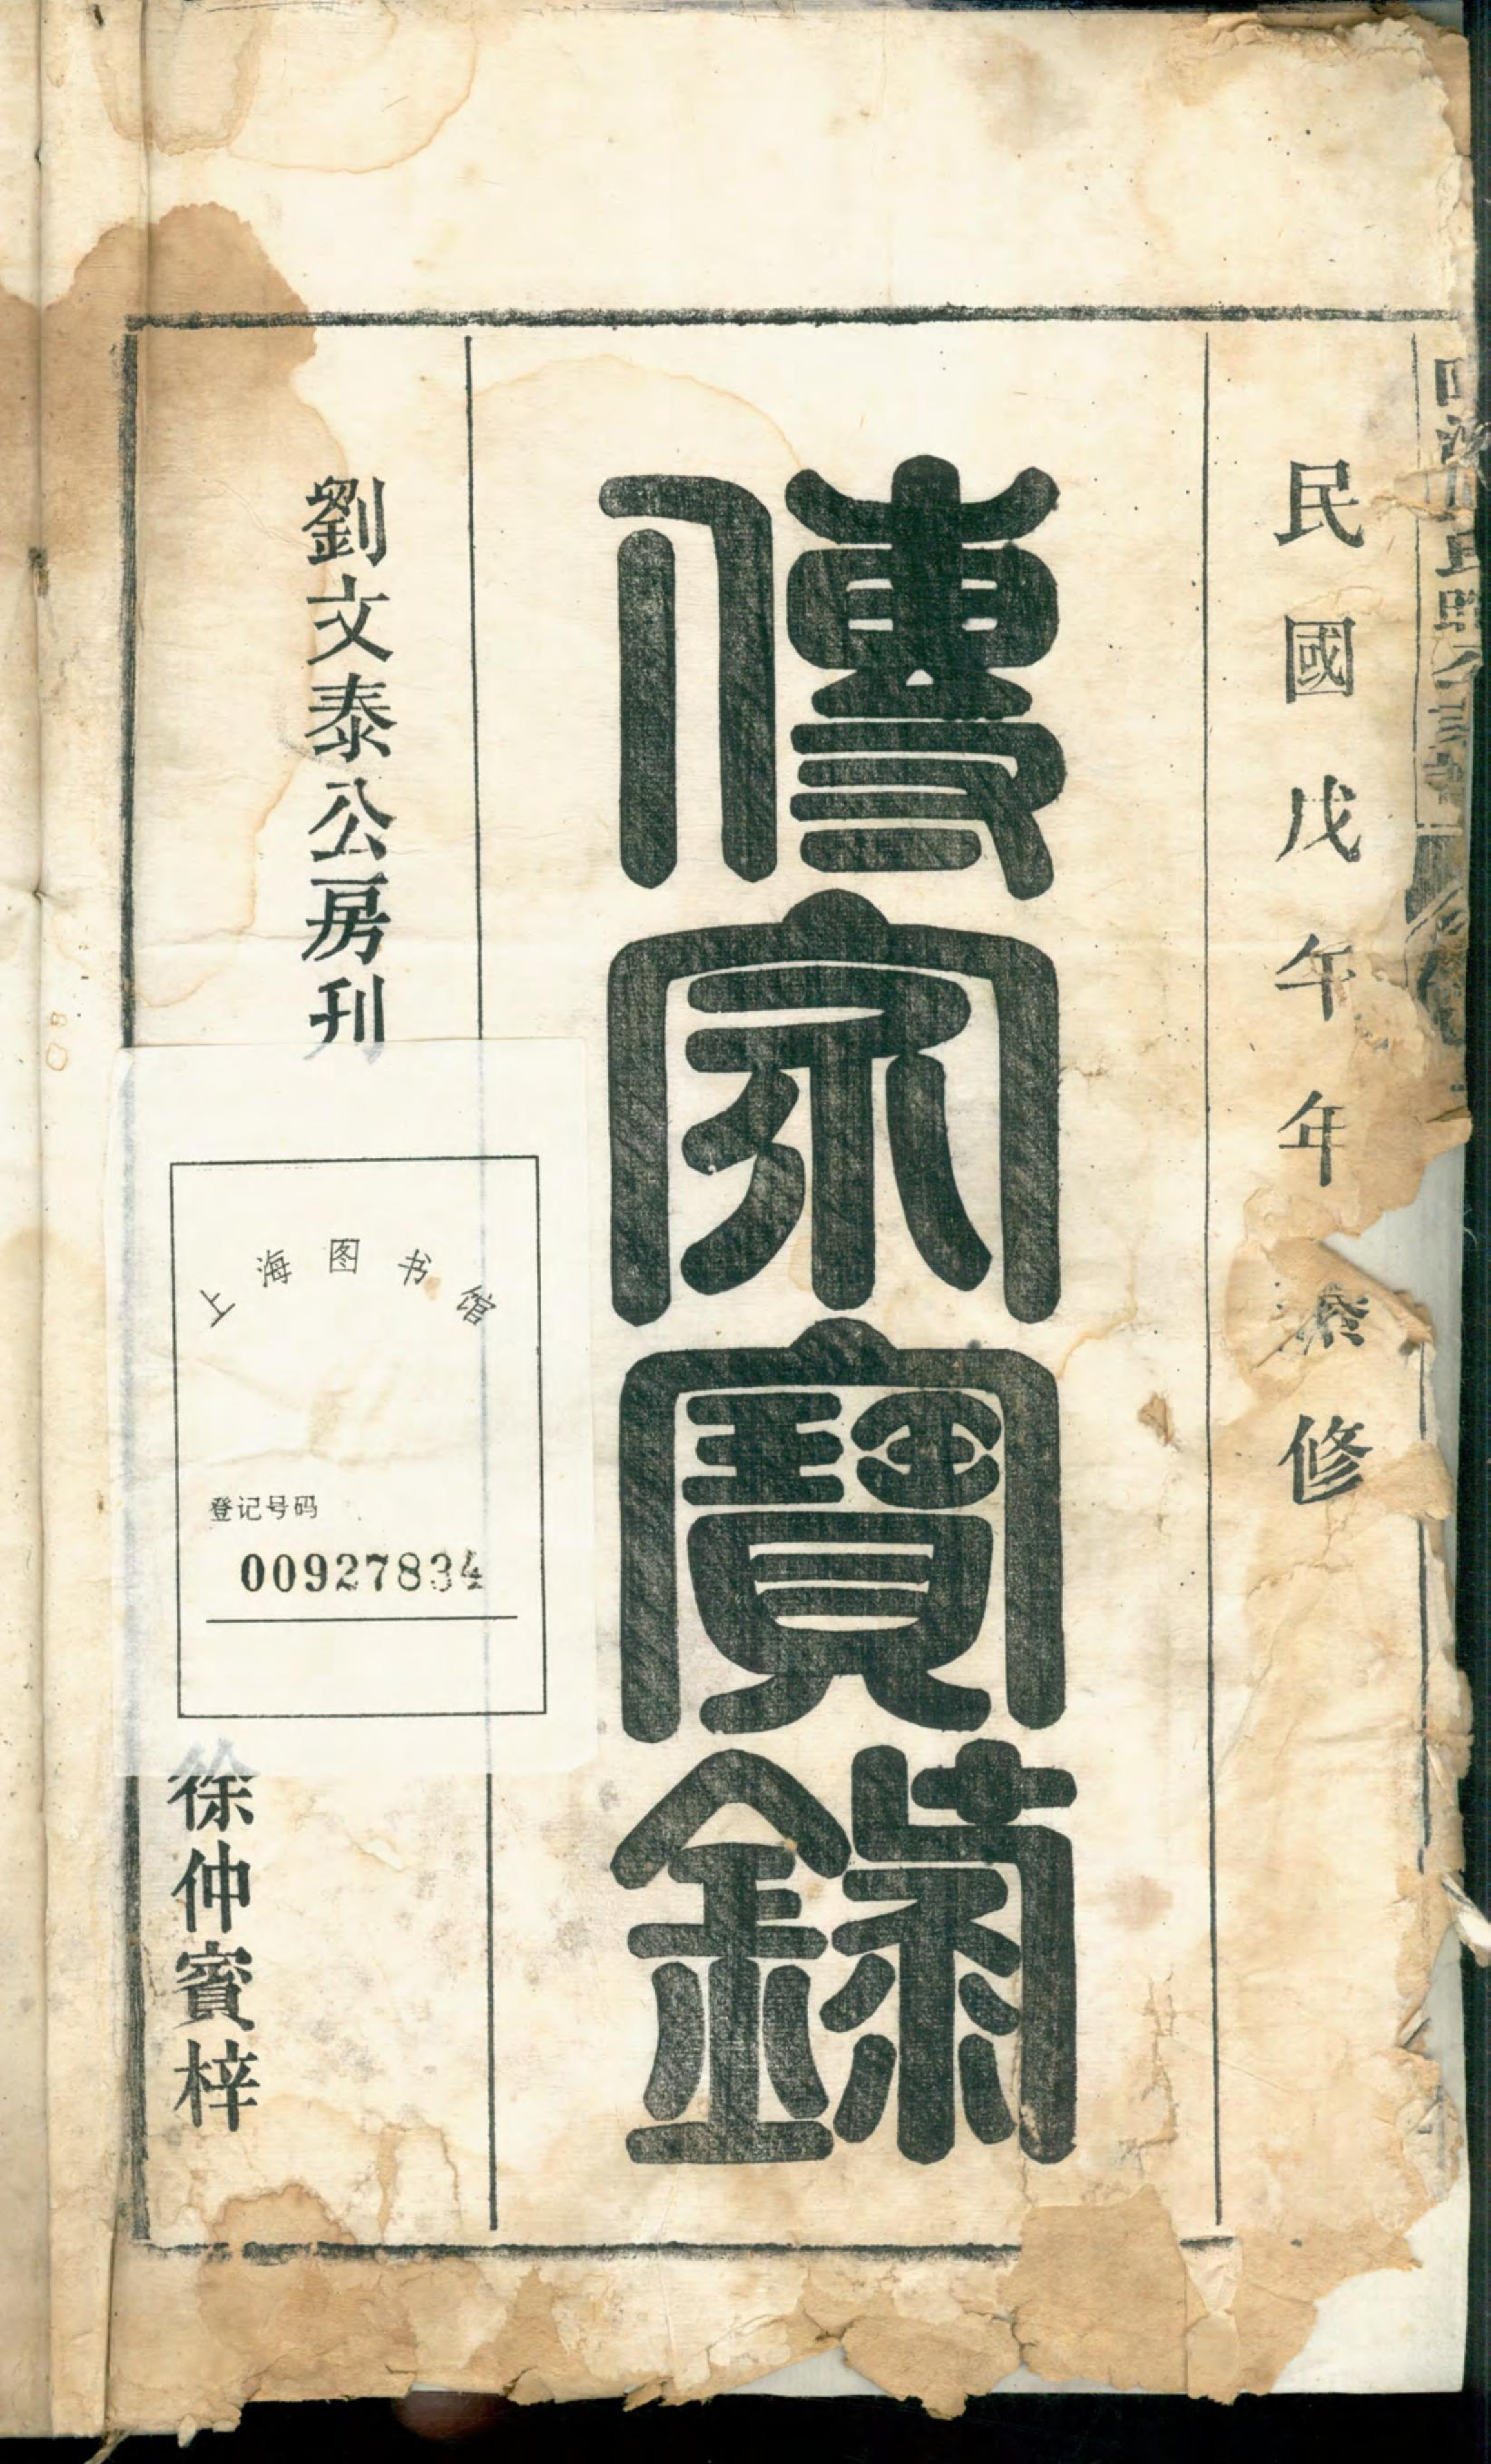 民國戊午年㳟修
傳家寶錄
劉文泰公房刊
徐仲賓梓
上海图书馆
登记号码
00927834